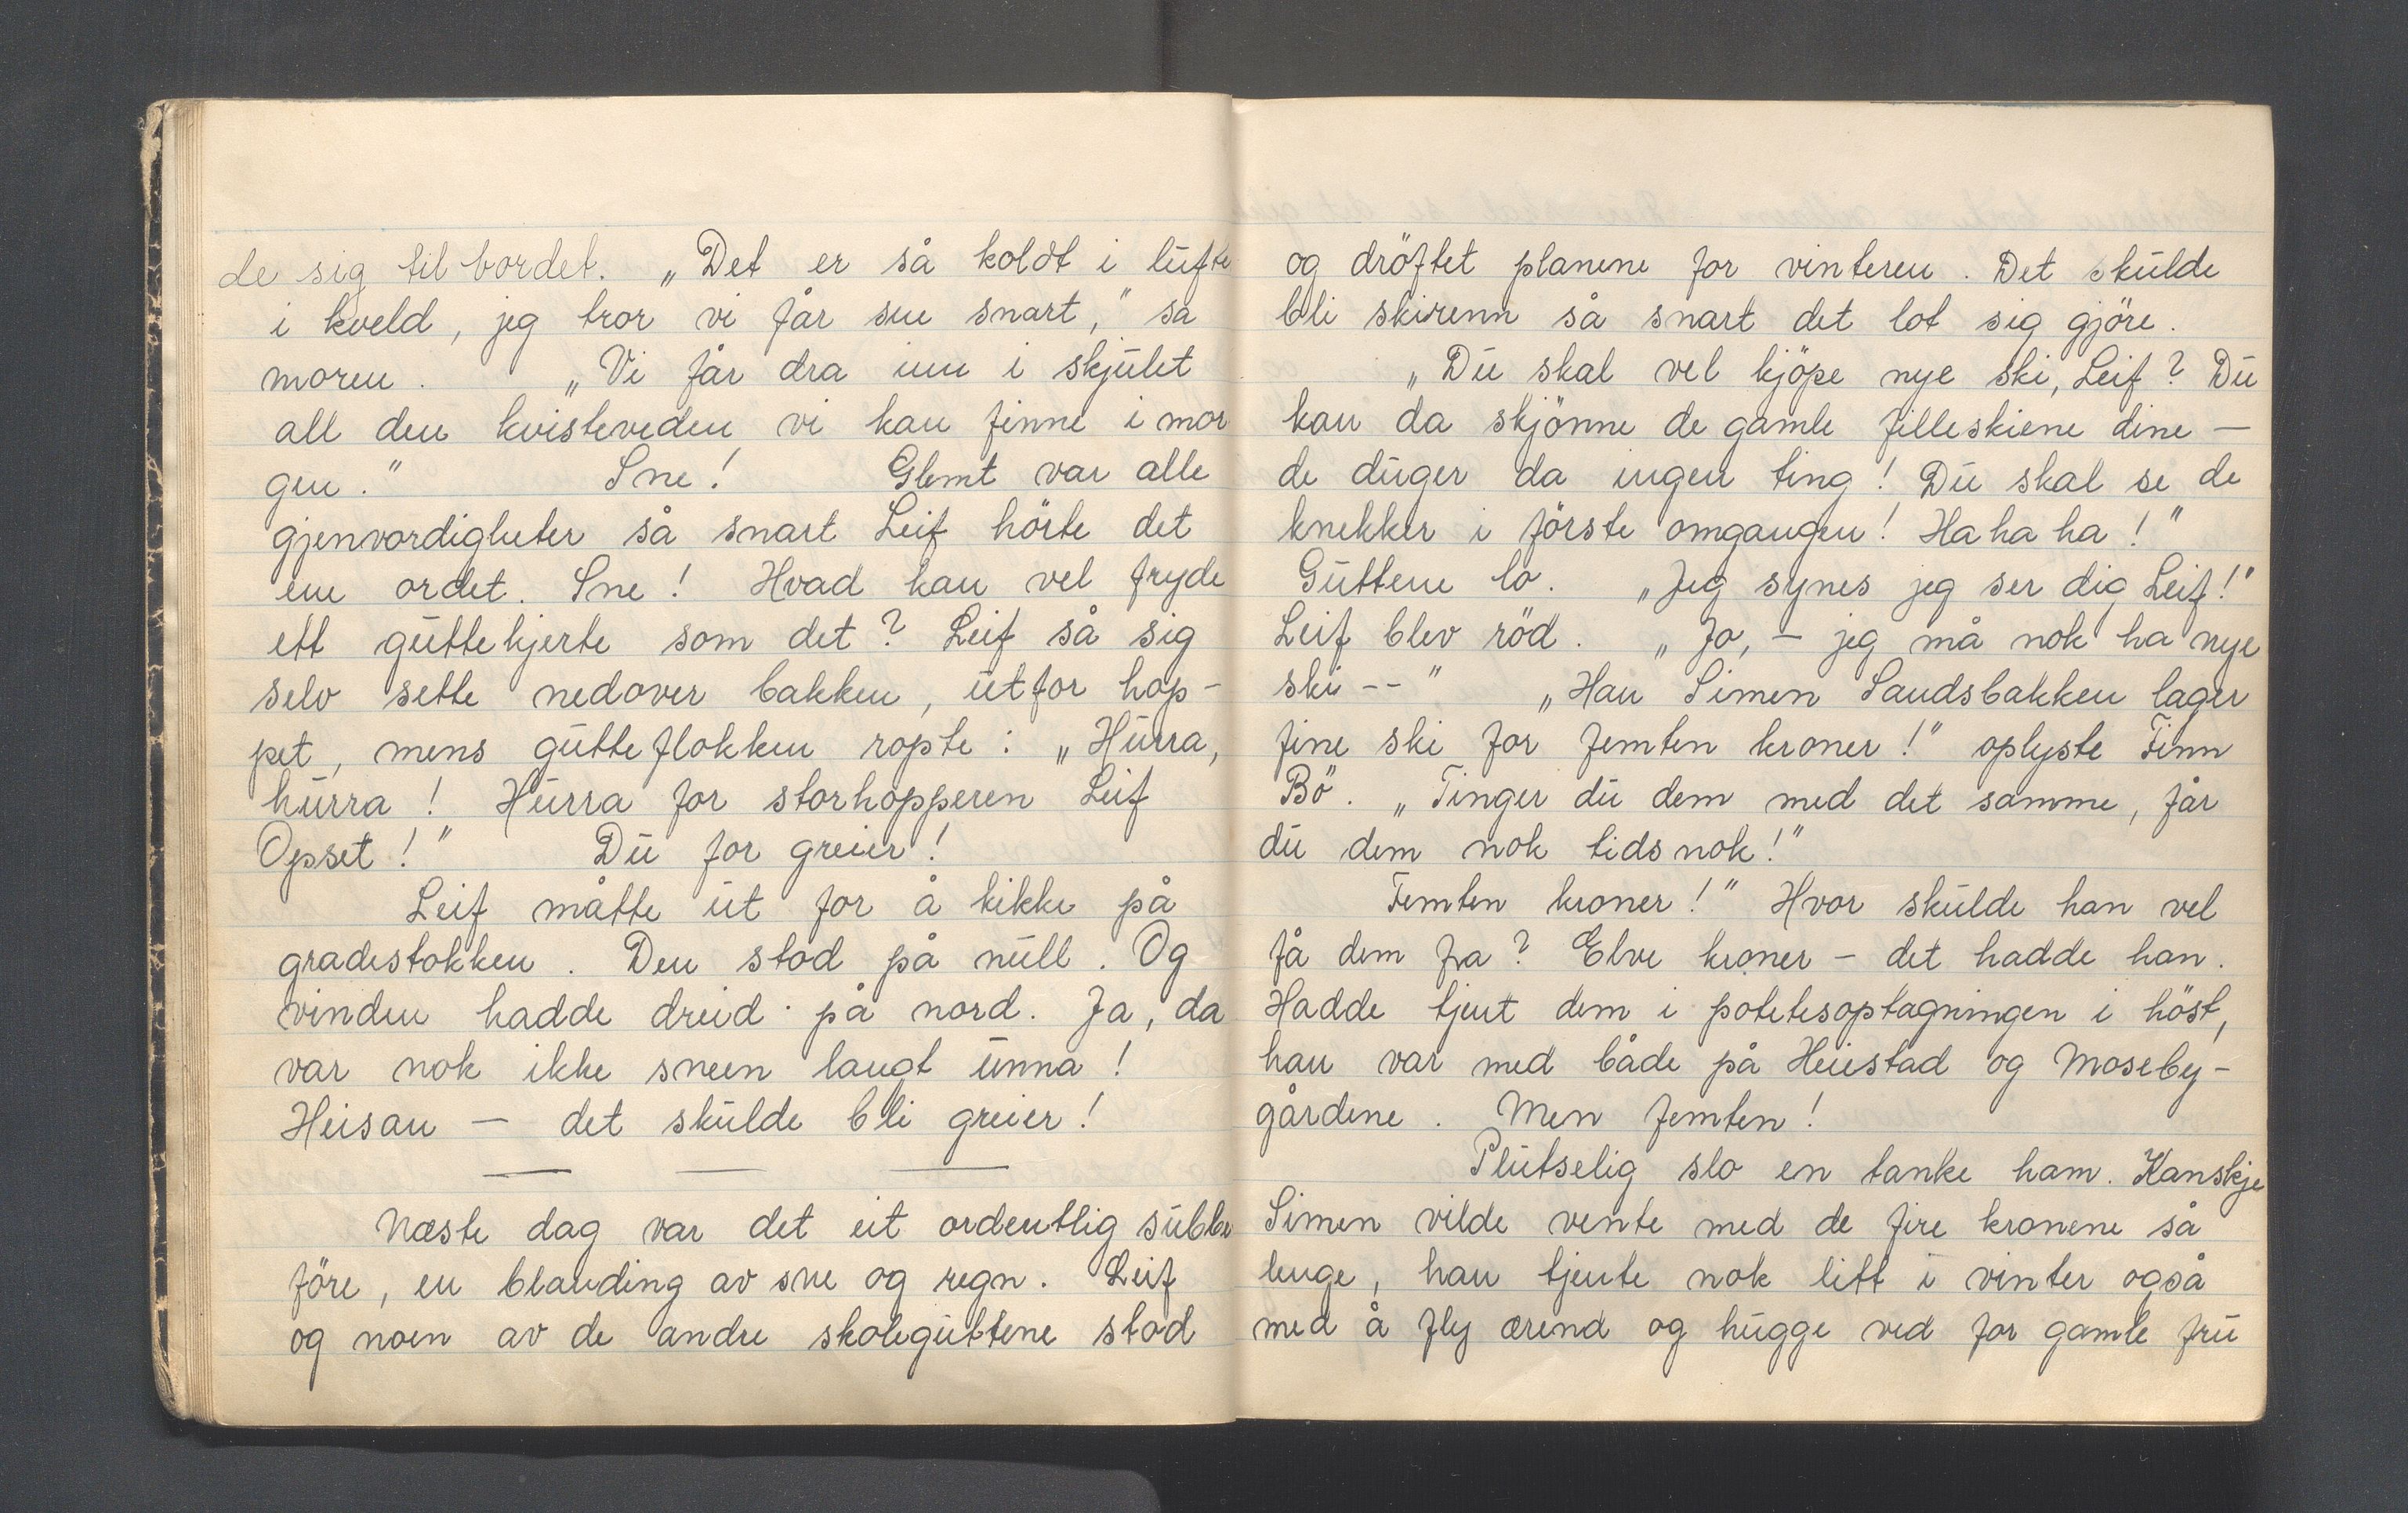 de sig til bordet. „Det er så koldt i lufte
i kveld, jeg tror vi får sne snart,” sa
moren. „Vi får dra inn i skjulet
all den kvisteveden vi kan finne i mor
gen.” Sne! Glemt var alle
gjenvordigheter så snart Leif hörte det
ene ordet. Sne! Hvad kan vel fryde
ett guttehjerte som det? Leif så sig
selv sette nedover bakken, utfor hop-
pet, mens gutteflokken ropte: „Hurra,
hurra! Hurra for storhopperen Leif
Opset!” Du for greier!
Leif måtte ut for å kikke på
gradestokken. Den stod på null. Og
vinden hadde dreid på nord. Ja, da
var nok ikke sneen langt unna!
Heisan — det skulde bli greier!
Næste dag var det eit ordentlig subbe
före, en blanding av sne og regn. Leif
og noen av de andre skoleguttene stod
og dröftet planene for vinteren. Det skulde
bli skirenn så snart det lot sig gjöre.
„Du skal vel kjöpe nye ski, Leif? Du
kan da skjönne de gamle filleskiene dine —
de duger da ingen ting! Du skal se de
knekker i förste omgangen! Ha ha ha!”
Guttene lo. „Jeg synes jeg ser dig Leif!”
Leif blev röd. „Jo, — jeg må nok ha nye
ski --” „Han Simen Sandsbakken lager
fine ski for femten kroner!” oplyste Finn
Bö. „Tinger du dem med det samme, får
du dem nok tidsnok!”
Femten kroner!” Hvor skulde han vel
få dem fra? Elve kroner — det hadde han.
Hadde tjent dem i potetesoptagningen i höst,
han var med både på Heiestad og Moseby-
gårdene. Men femten!
Plutselig slo en tanke ham. Kanskje
Simen vilde vente med de fire kronene så
lenge, han tjente nok litt i vinter også
med å fly ærend og hugge ved for gamle fru